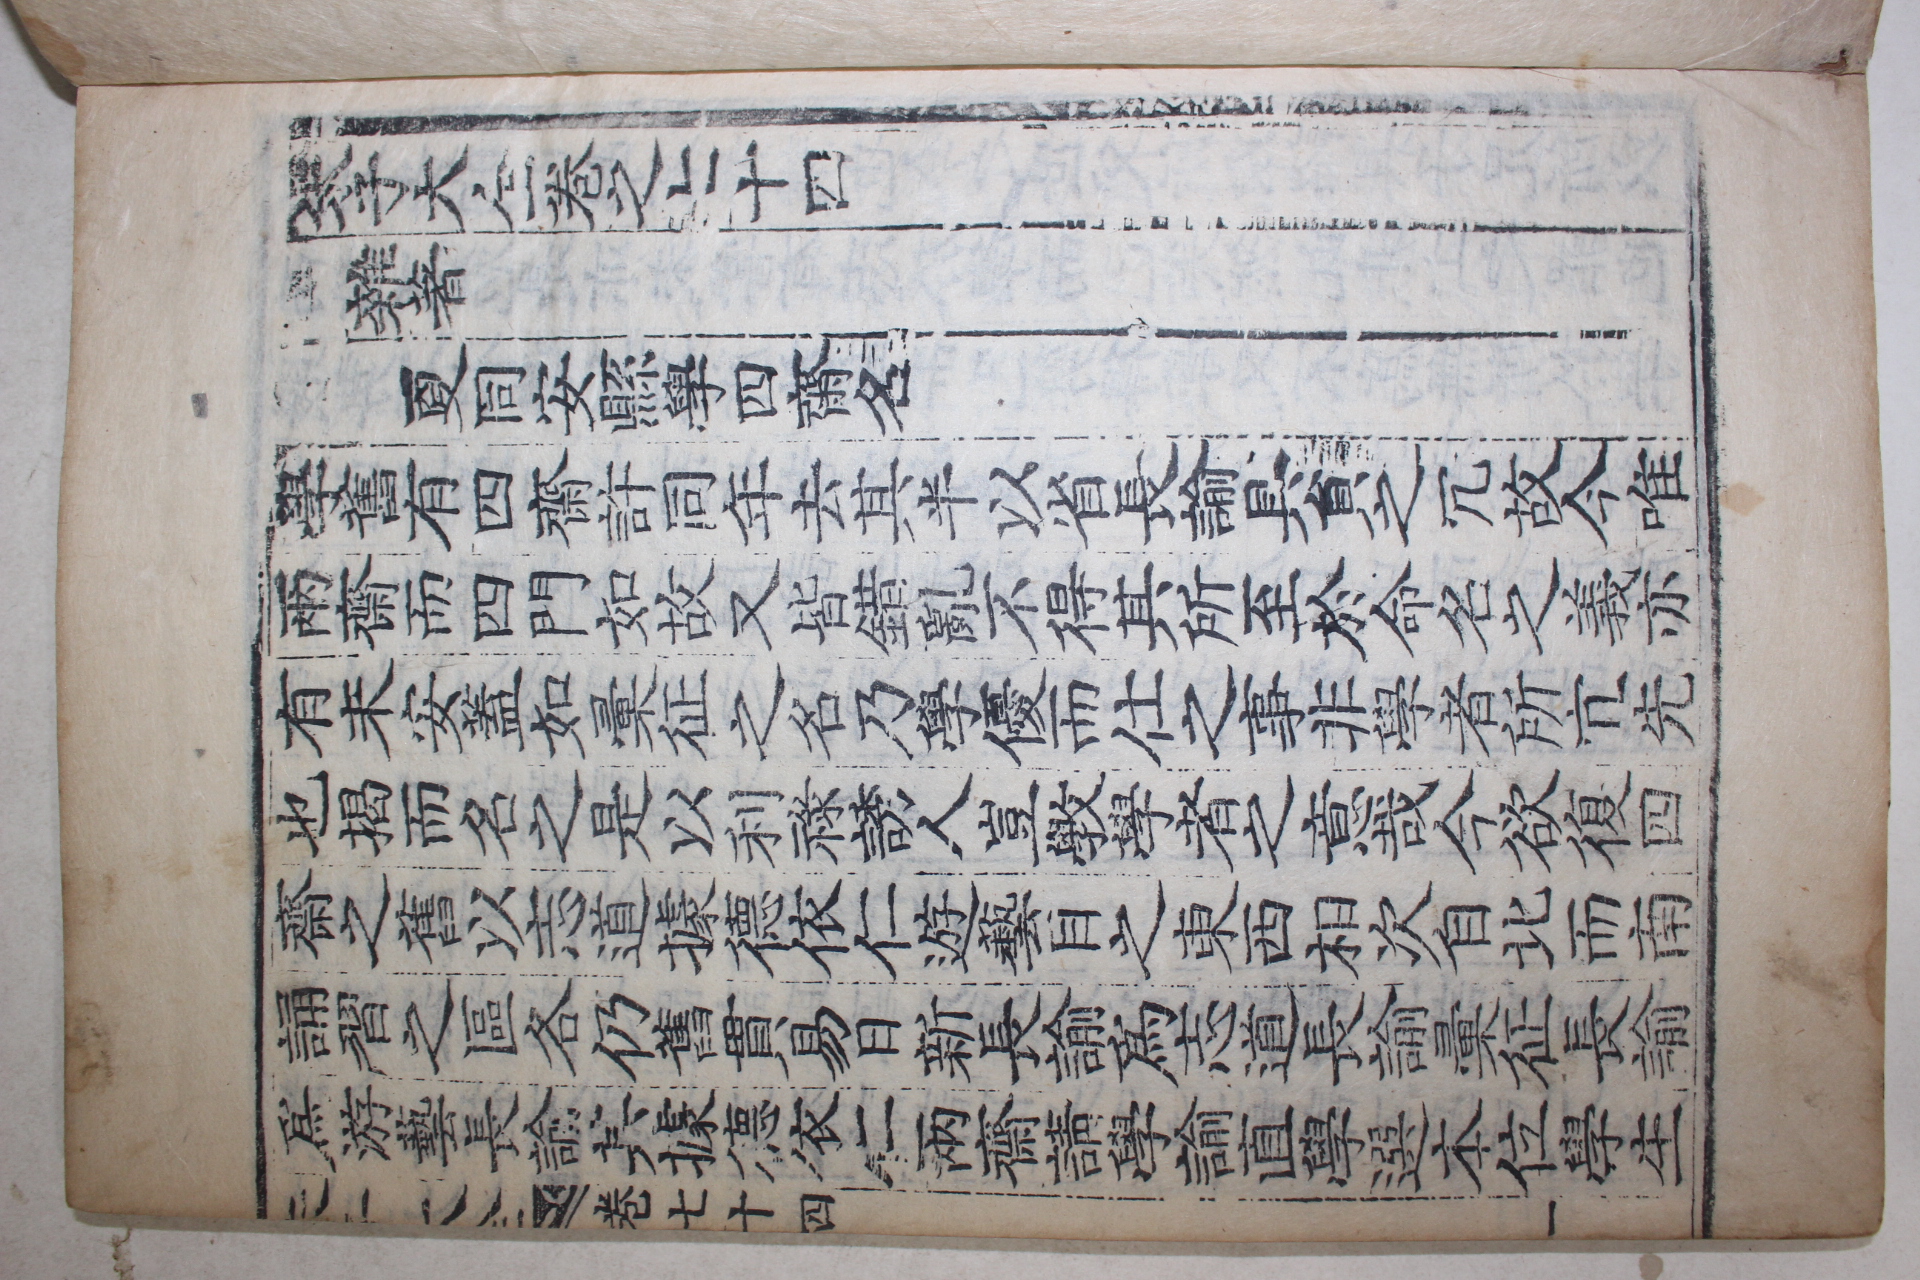 朱子大全卷之七十四
雜著
更同安縣學四齋名
學舊有四齋許同年去其半以省長諭具員之冗故今唯
兩齋而四門如故又皆錯亂不得其所至於命名之義亦
有未安蓋如彙征之名乃學優而仕之事非學者所宜先
也揭而名之是以利祿誘人豈敎學者之意哉今欲復四
齋之舊以志道據德依仁遊藝目之東西相次自北而南
誦習之區各仍舊貫易日新長諭爲志道長諭彙征長諭
爲游藝長諭其據德依仁兩齋請學諭直學選本位學生
卷七十四
一